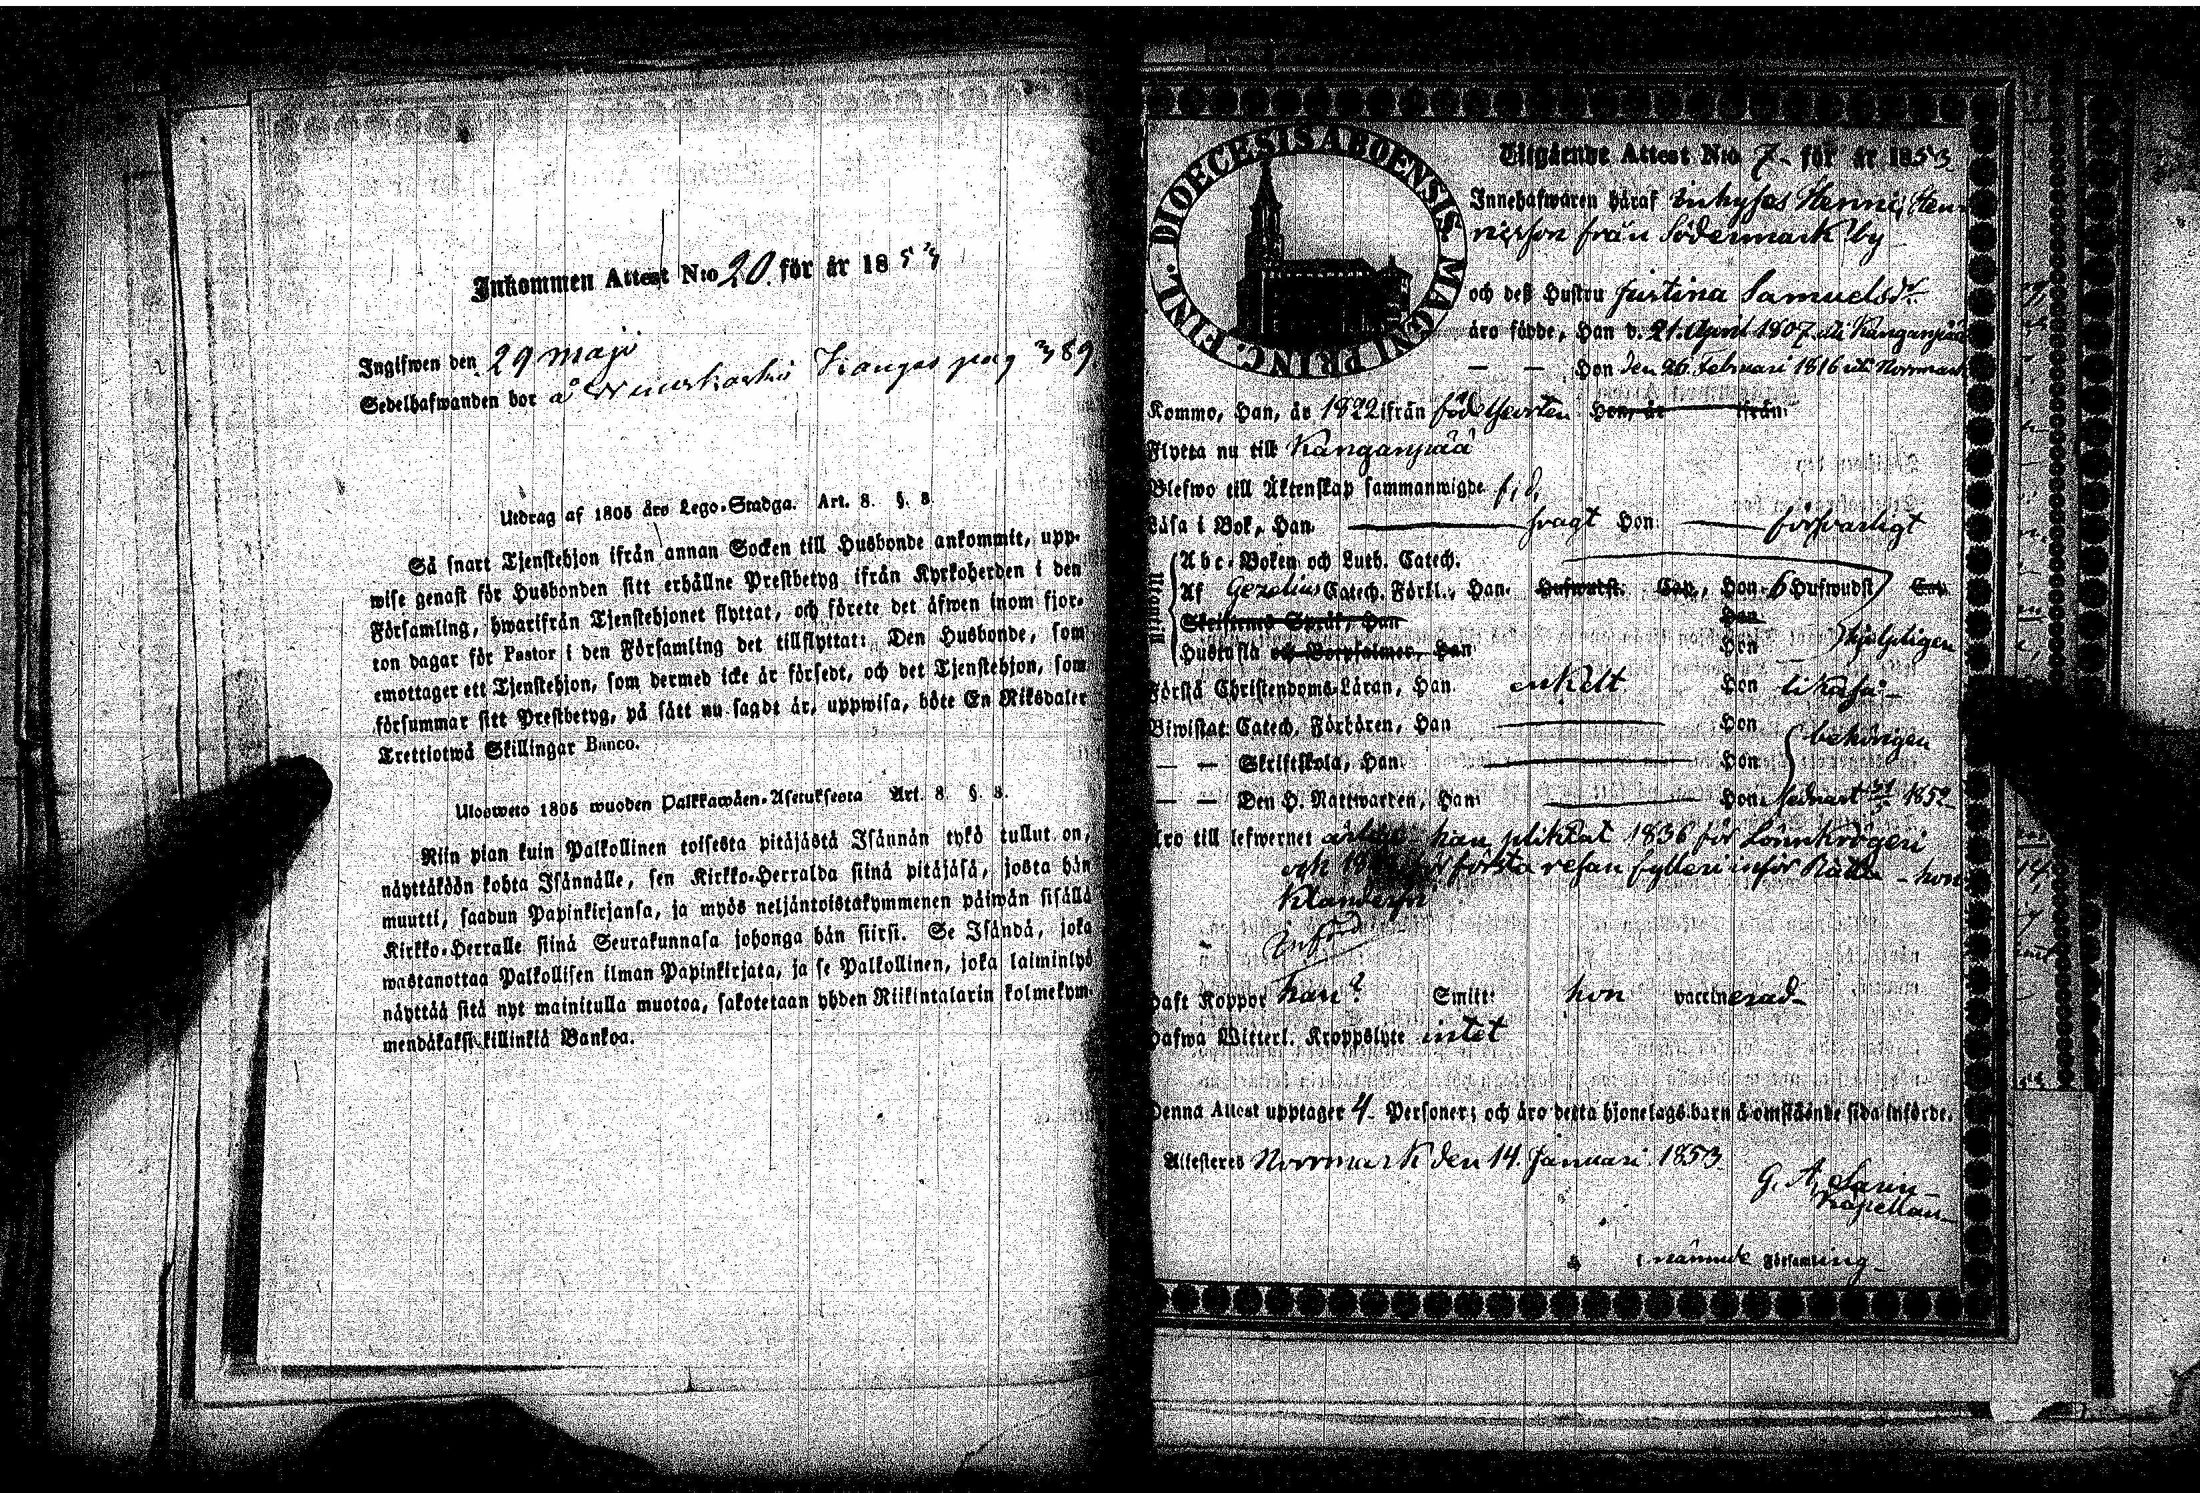 Inkommen Attest N:o 20. för år 185
Ingifwen den 29 maji
Sedelhafwanden bor å Kangas pag 389.
Utdrag af 1805 års Lego-Stadga. Art. 8. §. 8.
Så snart Tjenstehjon ifrån annan Socken till Husbonde ankommit, upp-
wise genast för Husbonden sitt erhållne Prestbetyg ifrån Kyrkoherden i den
Församling, hwarifrån Tjenstehjonet flyttat, och förete det äfwen inom fjor-
ton dagar för Pastor i den Församling det tillflyttat: Den Husbonde, som
emottager ett Tjenstehjon, som dermed icke är försedt, och det Tjenstehjon, som
försummar sitt Prestbetyg, på sätt nu sagdt är, uppwisa, böte En Riksdaler
Trettiotwå Skillingar Banco.
Ulosweto 1805 wuoden Palkkawäen-Asetuksesta Art. 8 §. 8.
Niin pian kuin Palkollinen toisesta pitäjästä Isännän tykö tullut on,
näyttäköön kohta Isännälle, sen Kirkko-Herralda siinä pitäjäsä, josta hän
muutti, saadun Papinkirjansa, ja myös neljäntoistakymmenen päiwän sisällä
Kirkko-Herralle siinä Seurakunnasa johonga hän siirsi. Se Isändä, joka
wastanottaa Palkollisen ilman Papinkirjata, ja se Palkollinen, joka laiminlyö
näyttää sitä nyt mainitulla muotoa, sakotetaan yhden Riikintalarin kolmekym-
mendäkaksi killinkiä Bankoa.
DIOECESIS ABOENSIS. MAGNI PRINC. FINL.
Utgående Attest N:o 7. för år 1853
Innehafwaren häraf inhyses Henric Hen-
ricsson från Södermark by
och dess Hustru Justina Samuelsdr
äro födde, Han d. 21. April 1807. uti Kanganpää
— — Hon den 26 Februari 1816 uti Norrmark
Kommo, Han, år 1822 ifrån födelseorten Hon, år ifrån
Flytta nu till Kanganpää
Blefwo till Äktenskap sammanwigde
Läsa i Bok, Han svagt Hon försvarligt
Utantil
Abc-Boken och Luth. Catech.
Af Gezelius Catech. Förkl., Han Hufwudst. Cap., Hon 6 Hufwudst Cap
Skriftenes Språk, Han Hon
Hustafla och Botpsalmer, Han Hon hjelpligen
Förstå Christendoms-Läran, Han enkelt Hon likaså
Biwistat Catech. Förhören, Han Hon behörigen
— — Skriftskola, Han Hon
— — Den H. Nattwarden, Han Hon sednast 1852
Äro till lefwernet han pliktat 1836 för Lönnkrögeri
och för första resan fylleri inför Rätta - hon
Klanderfri
Införd
Haft Koppor han? Smitt: hon vaccinerad
Hafwa Witterl. Kroppslyte intet
Denna Attest upptager 4 Personer; och äro detta hjonelags barn å omstående sida införde.
Attesteres Norrmark den 14. Januari 1853
G. A. Lavin
Kapellan
i nämnde Församling